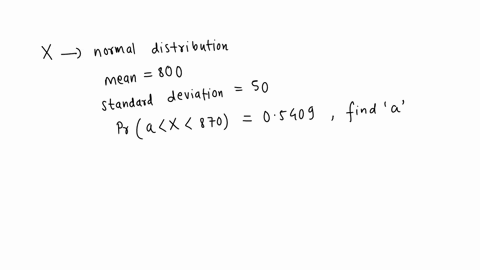 X → normal distribution
mean = 800
standard deviation = 50
Pr (a < X < 870) = 0.5409 , find 'a'